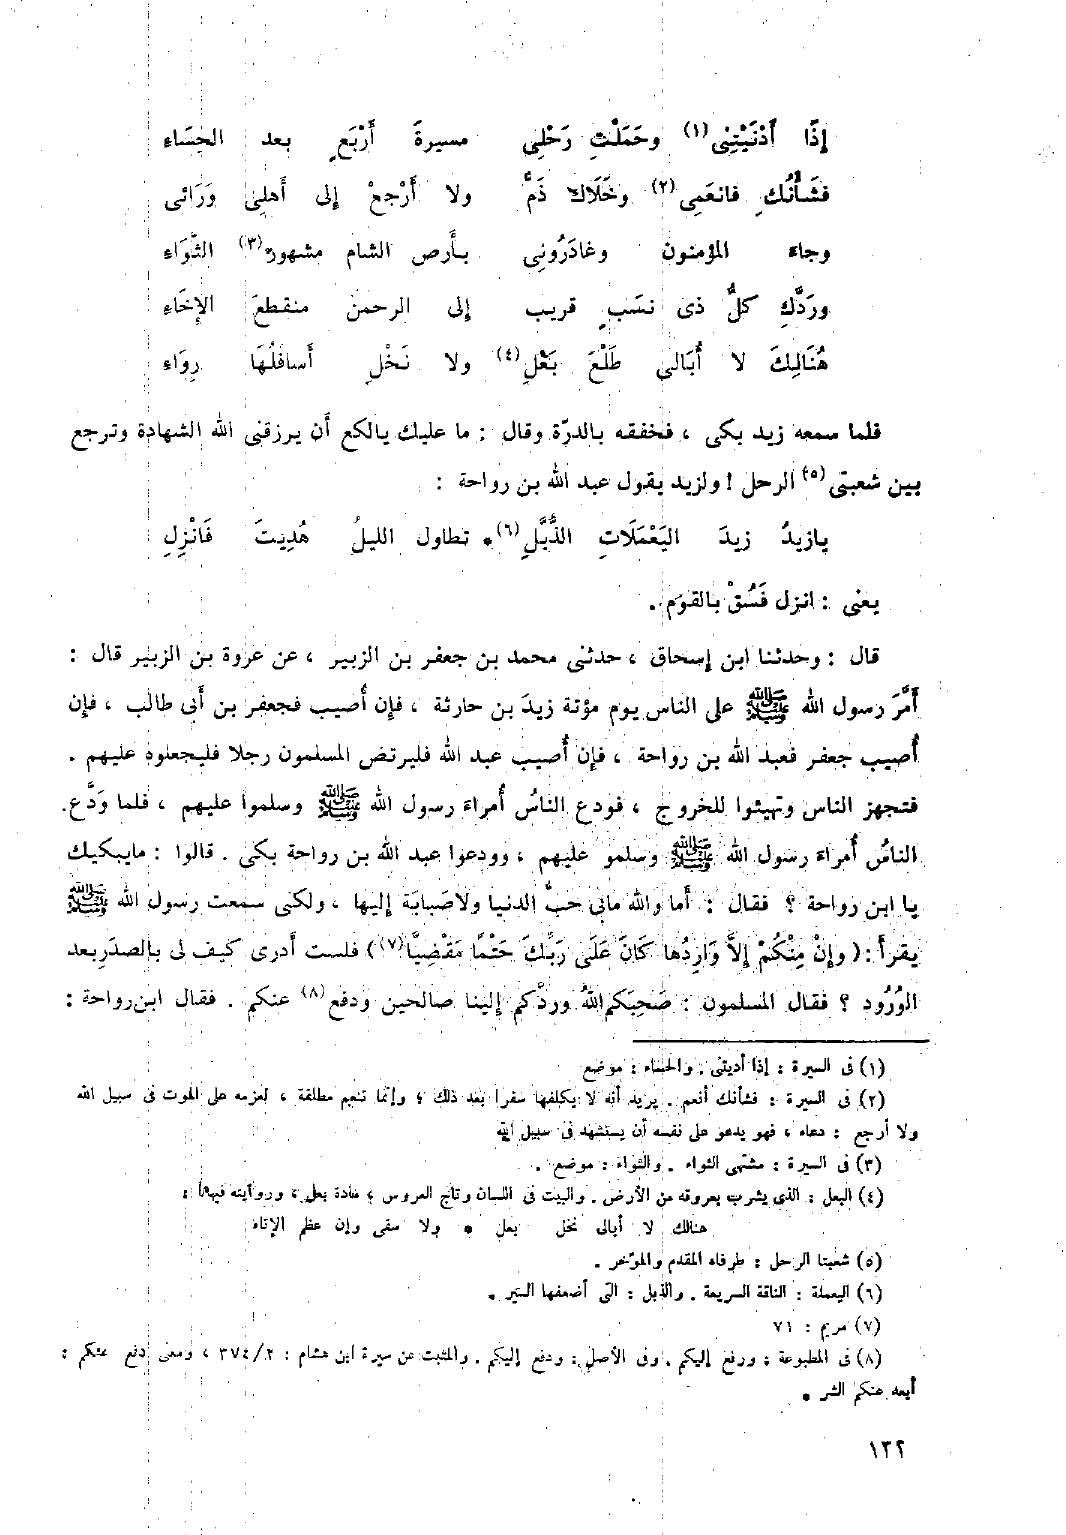 إذًا أَدْنَيْتِنِى(١) وحَمَلْتِ رَحْلِى مسيرةَ أَرْبَعٍ بعد الحِسَاءِ
فشَأْنُكِ فانعَمِى(٢) وخَلَاكِ ذَمٌّ ولا أَرْجعْ إلى أَهلِى وَرَائى
وجاء المؤمنون وغادَرُونِى بأَرض الشام مشهور(٣) الثَّوَاءِ
وردَّكِ كلُّ ذى نسَبٍ قريب إلى الرحمن منقطعَ الإِخَاءِ
هُنَالِكَ لا أُبَالى طَلْعَ بَعْلٍ(٤) ولا نَخْلٍ أَسافلُهَا رِوَاءِ
فلما سمعه زيد بكى ، فخفقه بالدرّة وقال : ما عليك يالكع أَن يرزقنى الله الشهادة وترجع
بين شعبتى(٥) الرحل ! ولزيد يقول عبد الله بن رواحة :
يازيدُ زيدَ اليَعْمَلَاتِ الذُّبَّلِ(٦) • تطاول الليلُ هُدِيتَ فَانْزِلِ
يعنى : انزل فَسُقْ بالقوم .
قال : وحدثنا ابن إسحاق ، حدثنى محمد بن جعفر بن الزبير ، عن عروة بن الزبير قال :
أَمَّرَ رسول الله ﷺ على الناس يوم مؤتة زيدَ بن حارثة ، فإن أُصيب فجعفر بن أَبى طالب ، فإن
أُصيب جعفر فعبد الله بن رواحة ، فإن أُصيب عبد الله فليرتض المسلمون رجلا فليجعلوه عليهم .
فتجهز الناس وتهيئوا للخروج ، فودع الناسُ أُمراءَ رسول الله ﷺ وسلموا عليهم ، فلما وَدَّع.
الناسُ أُمراءَ رسول الله ﷺ وسلمو عليهم ، وودعوا عبد الله بن رواحة بكى . قالوا : مايبكيك
يا ابن رواحة ؟ فقال : أَما والله مابى حبُّ الدنيا ولاصَبابَة إليها ، ولكنى سمعت رسول الله ﷺ
يقرأ : ( وإِنْ مِنْكُمْ إِلاَّ وَارِدُها كَانَ عَلَى رَبِّكَ حَتْمًا مَقْضِيًّا(٧) ) فلست أَدرى كيف لى بالصدَرِ بعد
الوُرُود ؟ فقال المسلمون : صَحِبَكم اللهُ وردَّكم إلينا صالحين ودفع(٨) عنكم . فقال ابن رواحة :
(١) فى السيرة : إذا أديتنى . والحساء : موضع
(٢) فى السيرة : فشأنك أنعم . يريد أنه لا يكلفها سفرا بعد ذلك ؛ وإنما تنعم مطلقة ، لعزمه على الموت فى سبيل الله
ولا أرجع : دعاء ، فهو يدعو على نفسه أن يستشهد فى سبيل الله
(٣) فى السيرة : مشتهى الثواء . والثواء : موضع .
(٤) البعل : الذى يشرب بعروقه من الأرض . والبيت فى اللسان وتاج العروس ؛ مادة بعل ، وروايته فيهما :
هنالك لا أبالى نخل بعل • ولا سقى وإن عظم الإتاء
(٥) شعبتا الرحل : طرفاه المقدم والمؤخر .
(٦) اليعملة : الناقة السريعة . والذبل : التى أضعفها السير .
(٧) مريم : ٧١
(٨) فى المطبوعة : ورفع إليكم . وفى الأصل : ودفع إليكم . والمثبت عن سيرة ابن هشام : ٣٧٤/٢ ، ومعنى دفع عنكم :
أبعد عنكم الشر .
١٣٢